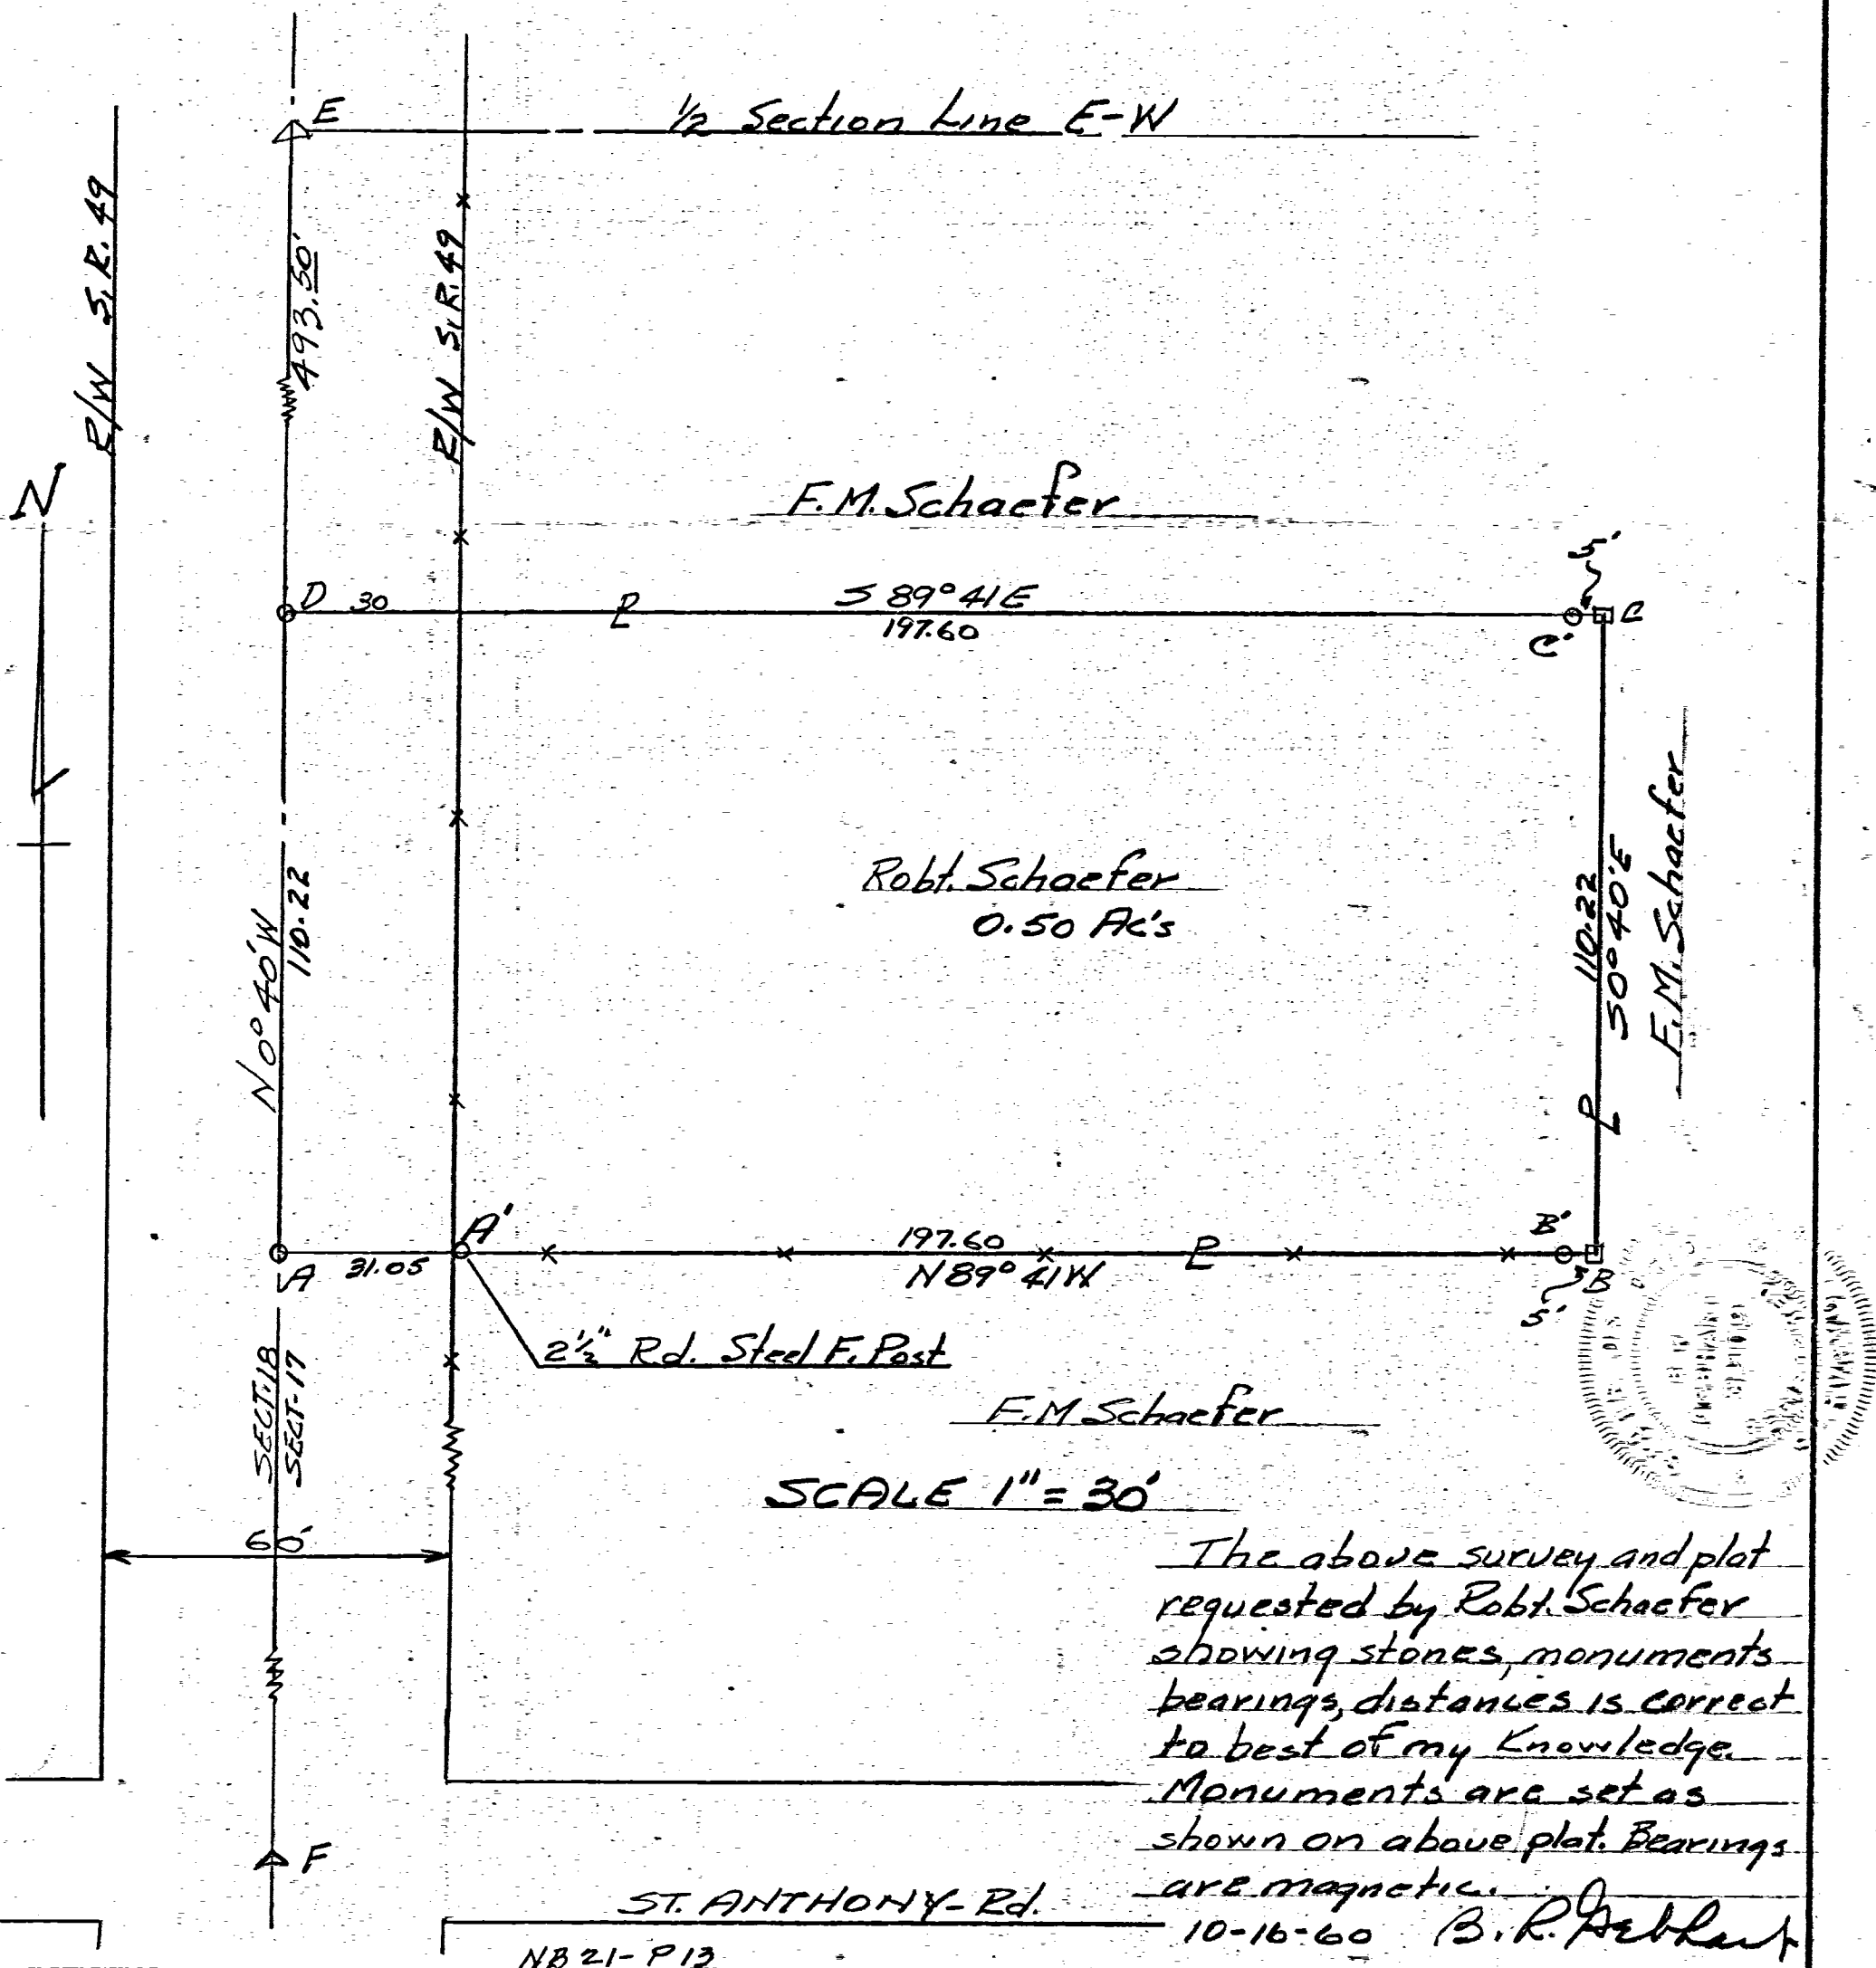 E
1/2 Section Line E-W
R/W S.R. 49
493.50'
R/W S.R. 49
N
F.M. Schaefer
5'
D 30
S 89° 41 E
PL
197.60
C
C'
Robt. Schaefer
0.50 Ac's
N 0° 40' W
110.22
110.22
S 0° 40' E
F.M. Schaefer
PL
A'
B'
197.60
PL
A 31.05
N 89° 41 W
B
5'
2 1/2" Rd. Steel F. Post
SECT-18
SECT-17
F.M Schaefer
SCALE 1" = 30'
60'
The above survey and plat
requested by Robt. Schaefer
showing stones, monuments
bearings, distances is correct
to best of my Knowledge.
Monuments are set as
shown on above plat. Bearings
are magnetic.
F
ST. ANTHONY-Rd.
10-16-60 B. R. Gebhart
NB 21- P 13